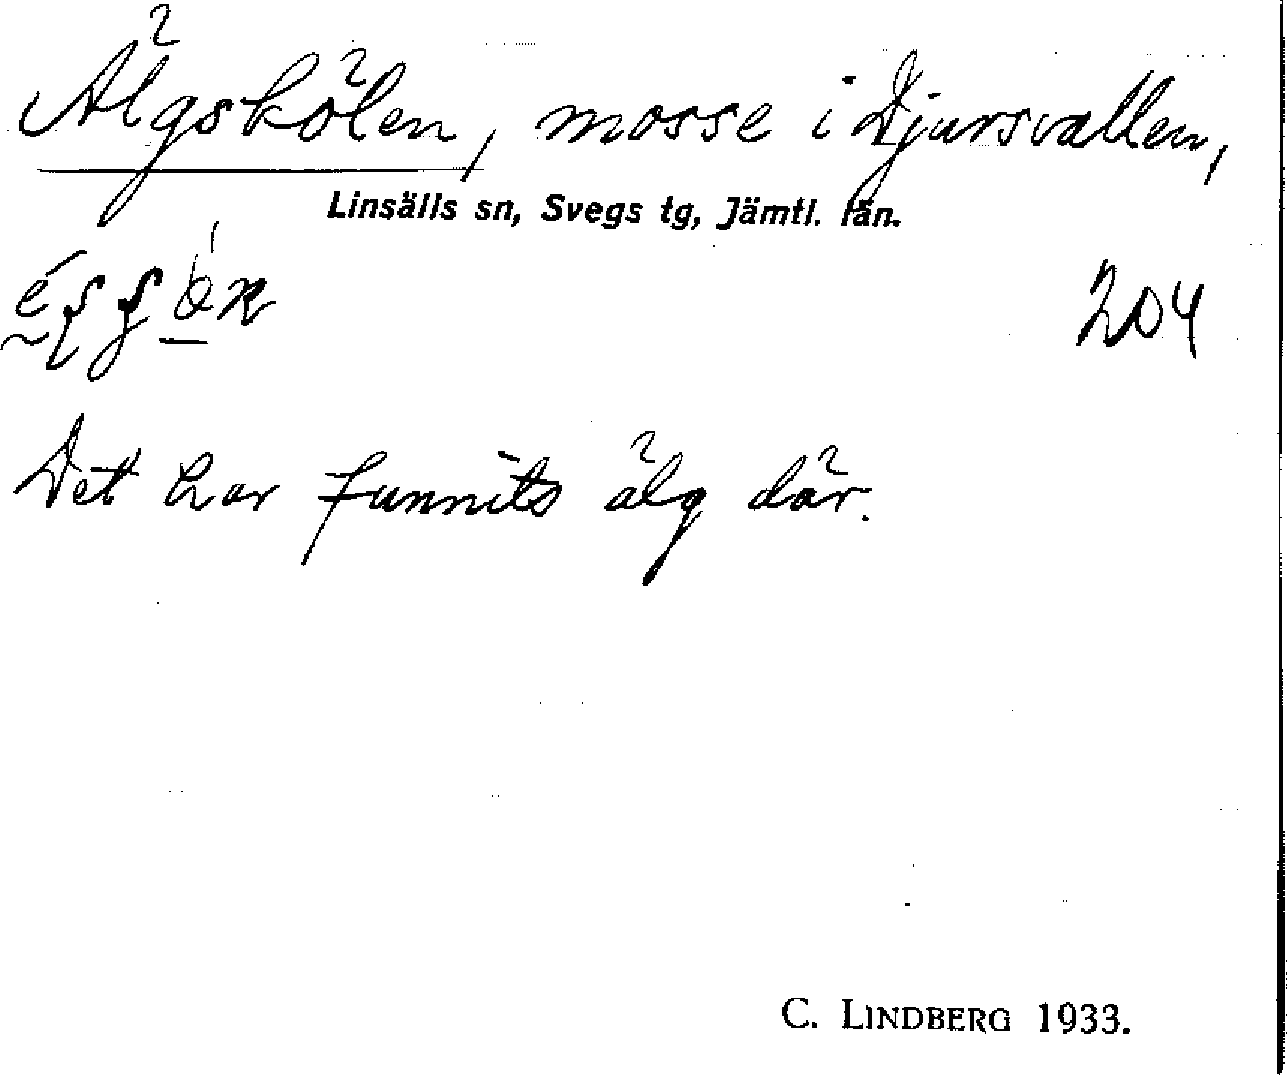 Älgskölen, mosse i Djursvallen,
Linsälls sn, Svegs tg, Jämtl. län.
204
Det har funnits älg där.
C. LINDBERG 1933.